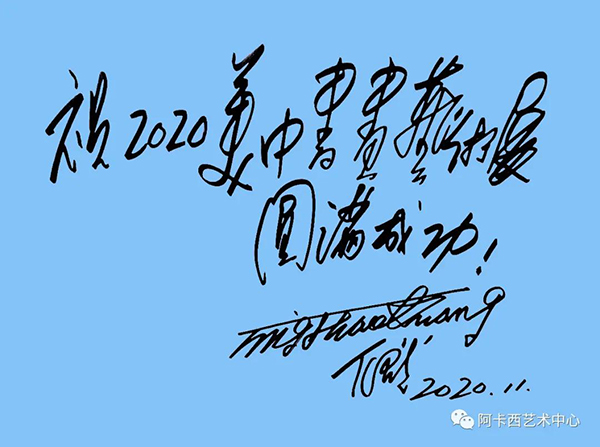 祝2020美中書畫藝術展
圓满成功!
2020.11.
阿卡西艺术中心